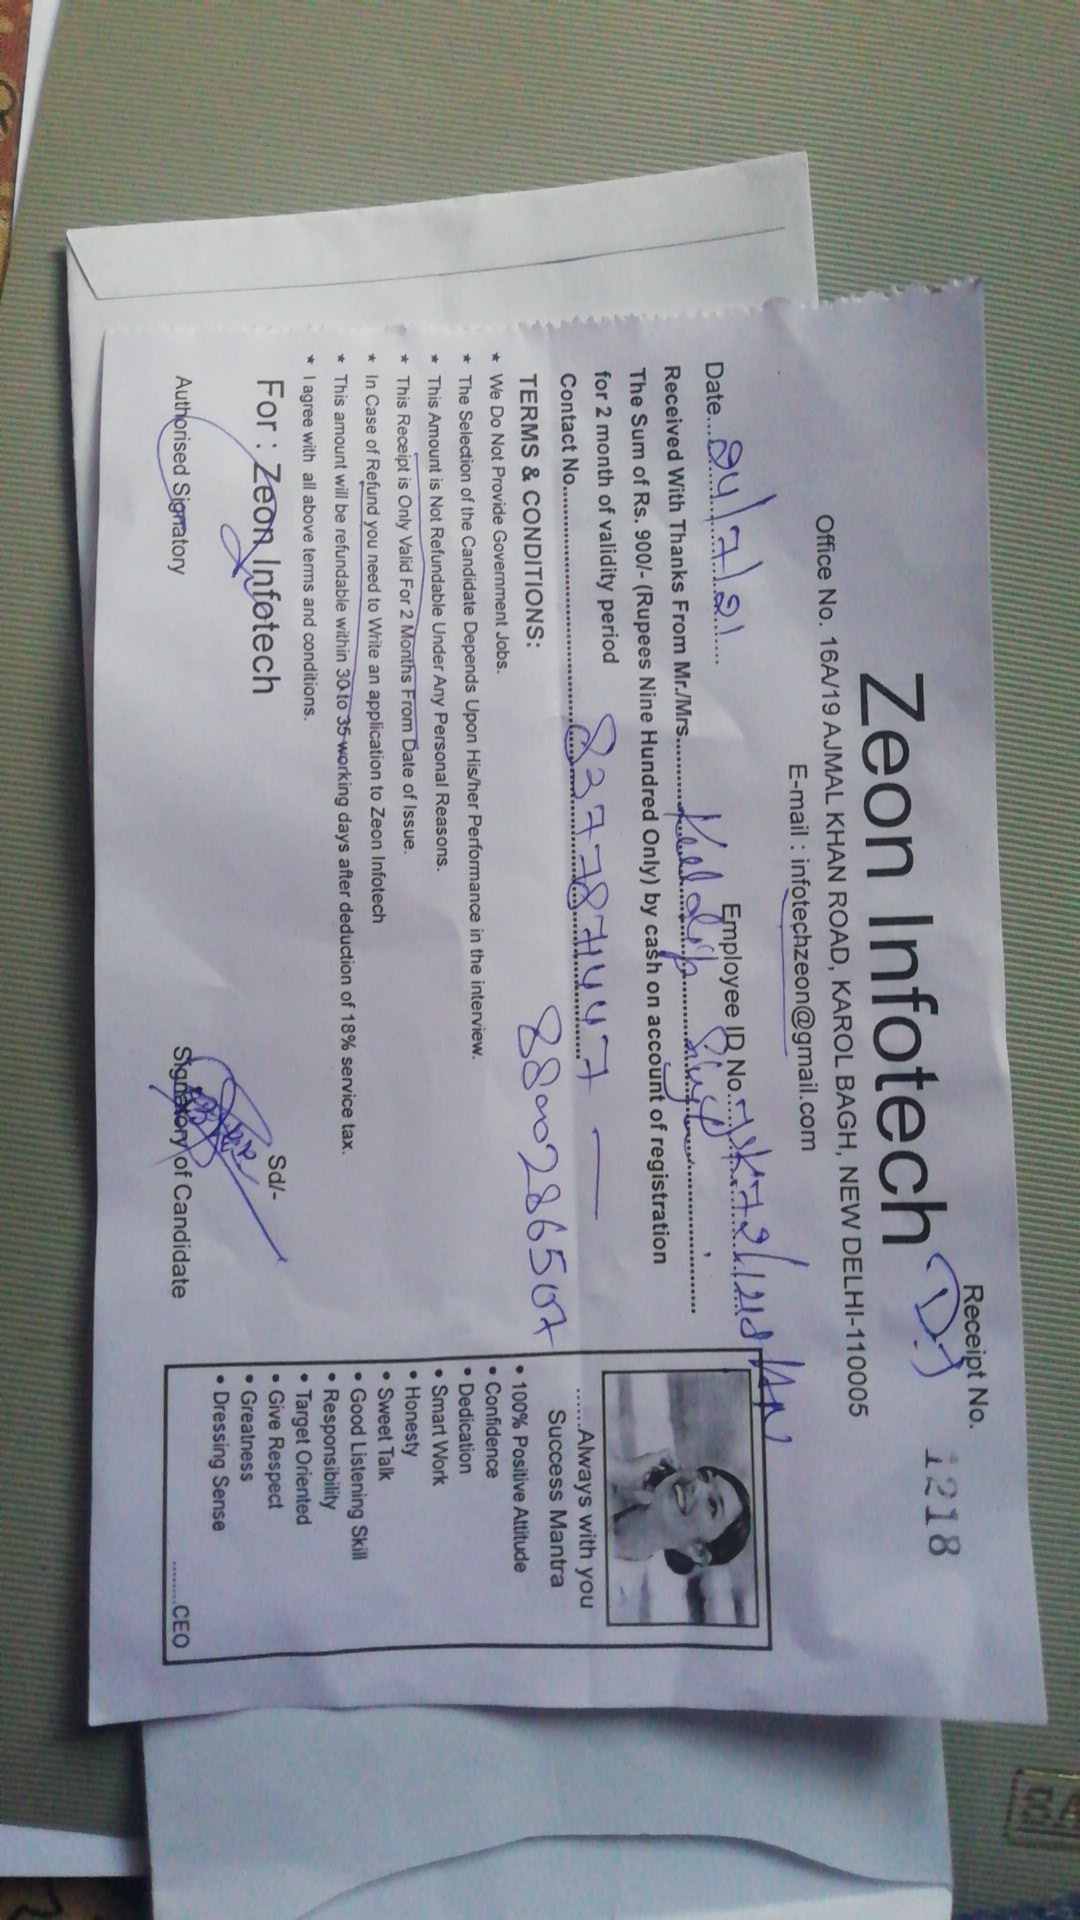 Receipt No. 1218
Zeon Infotech
Office No. 16A/19 AJMAL KHAN ROAD, KAROL BAGH, NEW DELHI-110005
E-mail : infotechzeon@gmail.com
Date....24/7/21...... Employee ID No.
Received With Thanks From Mr./Mrs.......Kuldip
The Sum of Rs. 900/- (Rupees Nine Hundred Only) by cash on account of registration
for 2 month of validity period
Contact No.
8800286507
TERMS & CONDITIONS:
* We Do Not Provide Government Jobs.
* The Selection of the Candidate Depends Upon His/her Performance in the interview.
* This Amount is Not Refundable Under Any Personal Reasons.
* This Receipt is Only Valid For 2 Months From Date of Issue.
* In Case of Refund you need to Write an application to Zeon Infotech
* This amount will be refundable within 30 to 35 working days after deduction of 18% service tax.
* I agree with all above terms and conditions.
For : Zeon Infotech
Sd/-
Authorised Signatory
Signatory of Candidate
......Always with you
Success Mantra
• 100% Positive Attitude
• Confidence
• Dedication
• Smart Work
• Honesty
• Sweet Talk
• Good Listening Skill
• Responsibility
• Target Oriented
• Give Respect
• Greatness
• Dressing Sense
.........CEO